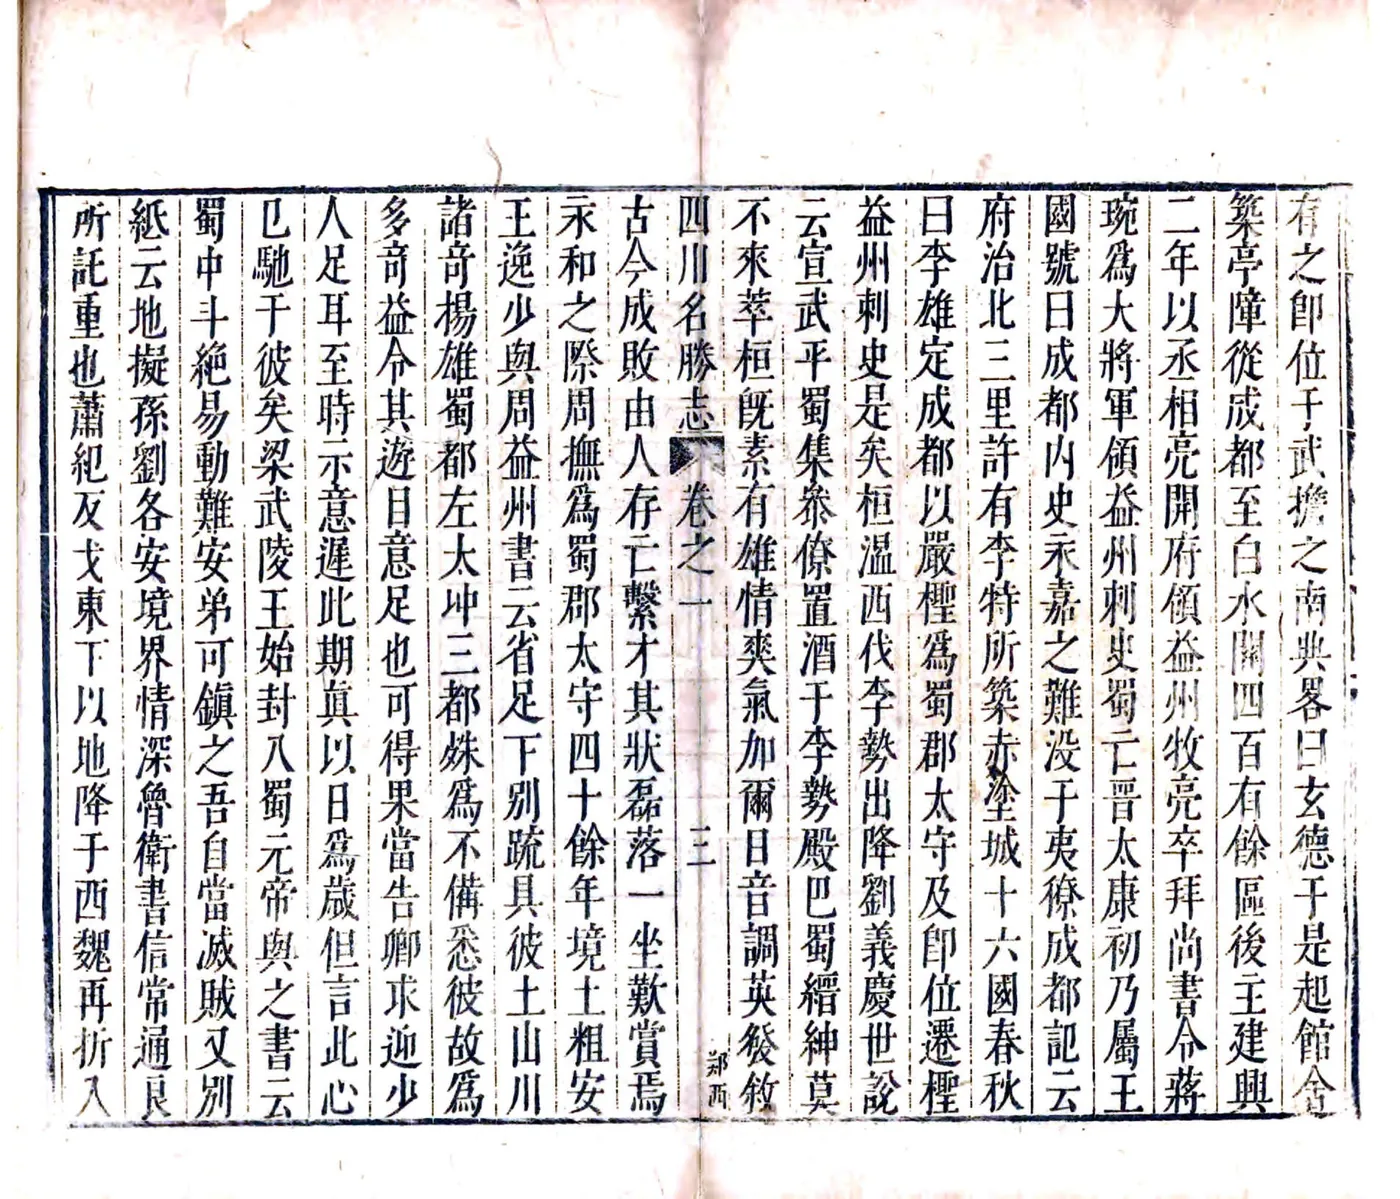 有之卽位于武擔之南典畧曰玄德于是起館舍
築亭障從成都至白水關四百有餘區後主建興
二年以丞相亮開府領益州牧亮卒拜尚書令蔣
琬爲大將軍領益州刺史蜀亡晉太康初乃屬王
國號曰成都內史永嘉之難没于夷獠成都記云
府治北三里許有李特所築赤塗城十六國春秋
曰李雄定成都以嚴檉爲蜀郡太守及卽位遷檉
益州刺史是矣桓溫西伐李勢出降劉義慶世說
云宣武平蜀集叅僚置酒于李勢殿巴蜀縉紳莫
不來萃桓旣素有雄情爽氣加爾日音調英發敘
四川名勝志 卷之一 三 郑西
古今成敗由人存亡繫才其狀磊落一坐歎賞焉
永和之際周撫爲蜀郡太守四十餘年境土粗安
王逸少與周益州書云省足下别䟽具彼土山川
諸奇揚雄蜀都左太冲三都姝爲不備悉彼故爲
多奇益令其遊目意足也可得果當告卿求迎少
人足耳至時示意遲此期真以日爲歲但言此心
已馳于彼矣梁武陵王始封入蜀元帝與之書云
蜀中斗絶易動難安弟可鎮之吾自當滅賊又别
紙云地擬孫劉各安境界情深魯衛書信常通良
所託重也蕭紀反戈東下以地降于西魏再折入